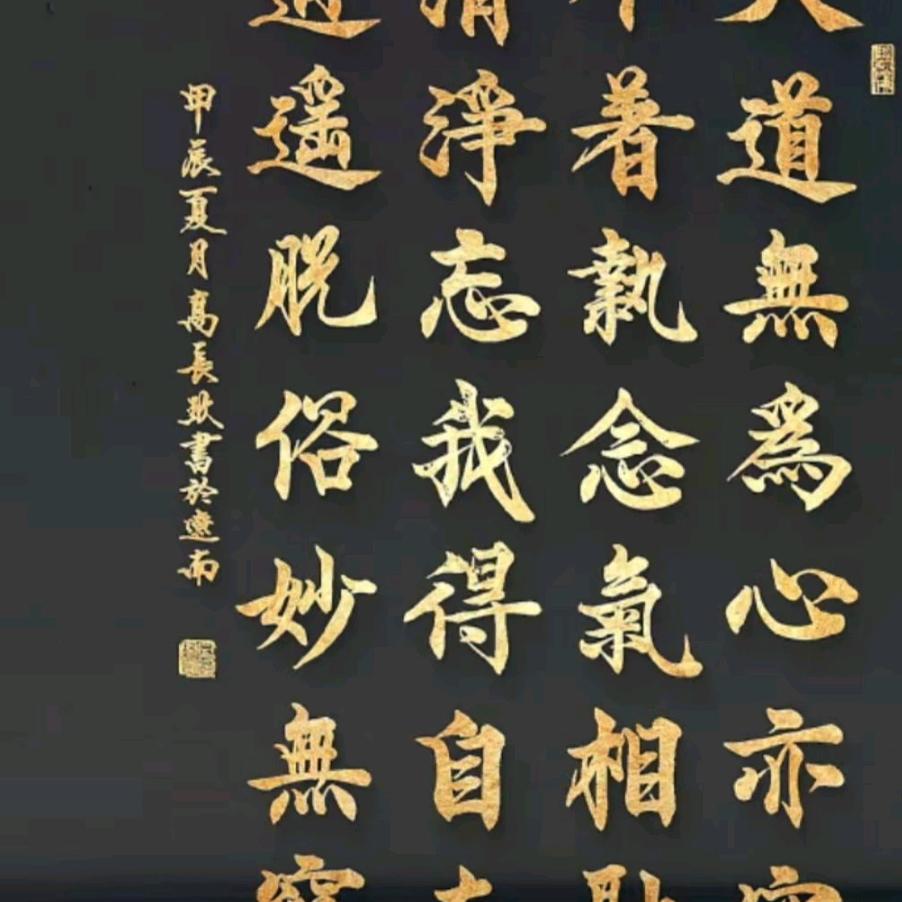 大道無為心亦空
不着執念氣相
清淨忘我得自
逍遥脱俗妙無窮
甲辰夏月高長歌書於遼南